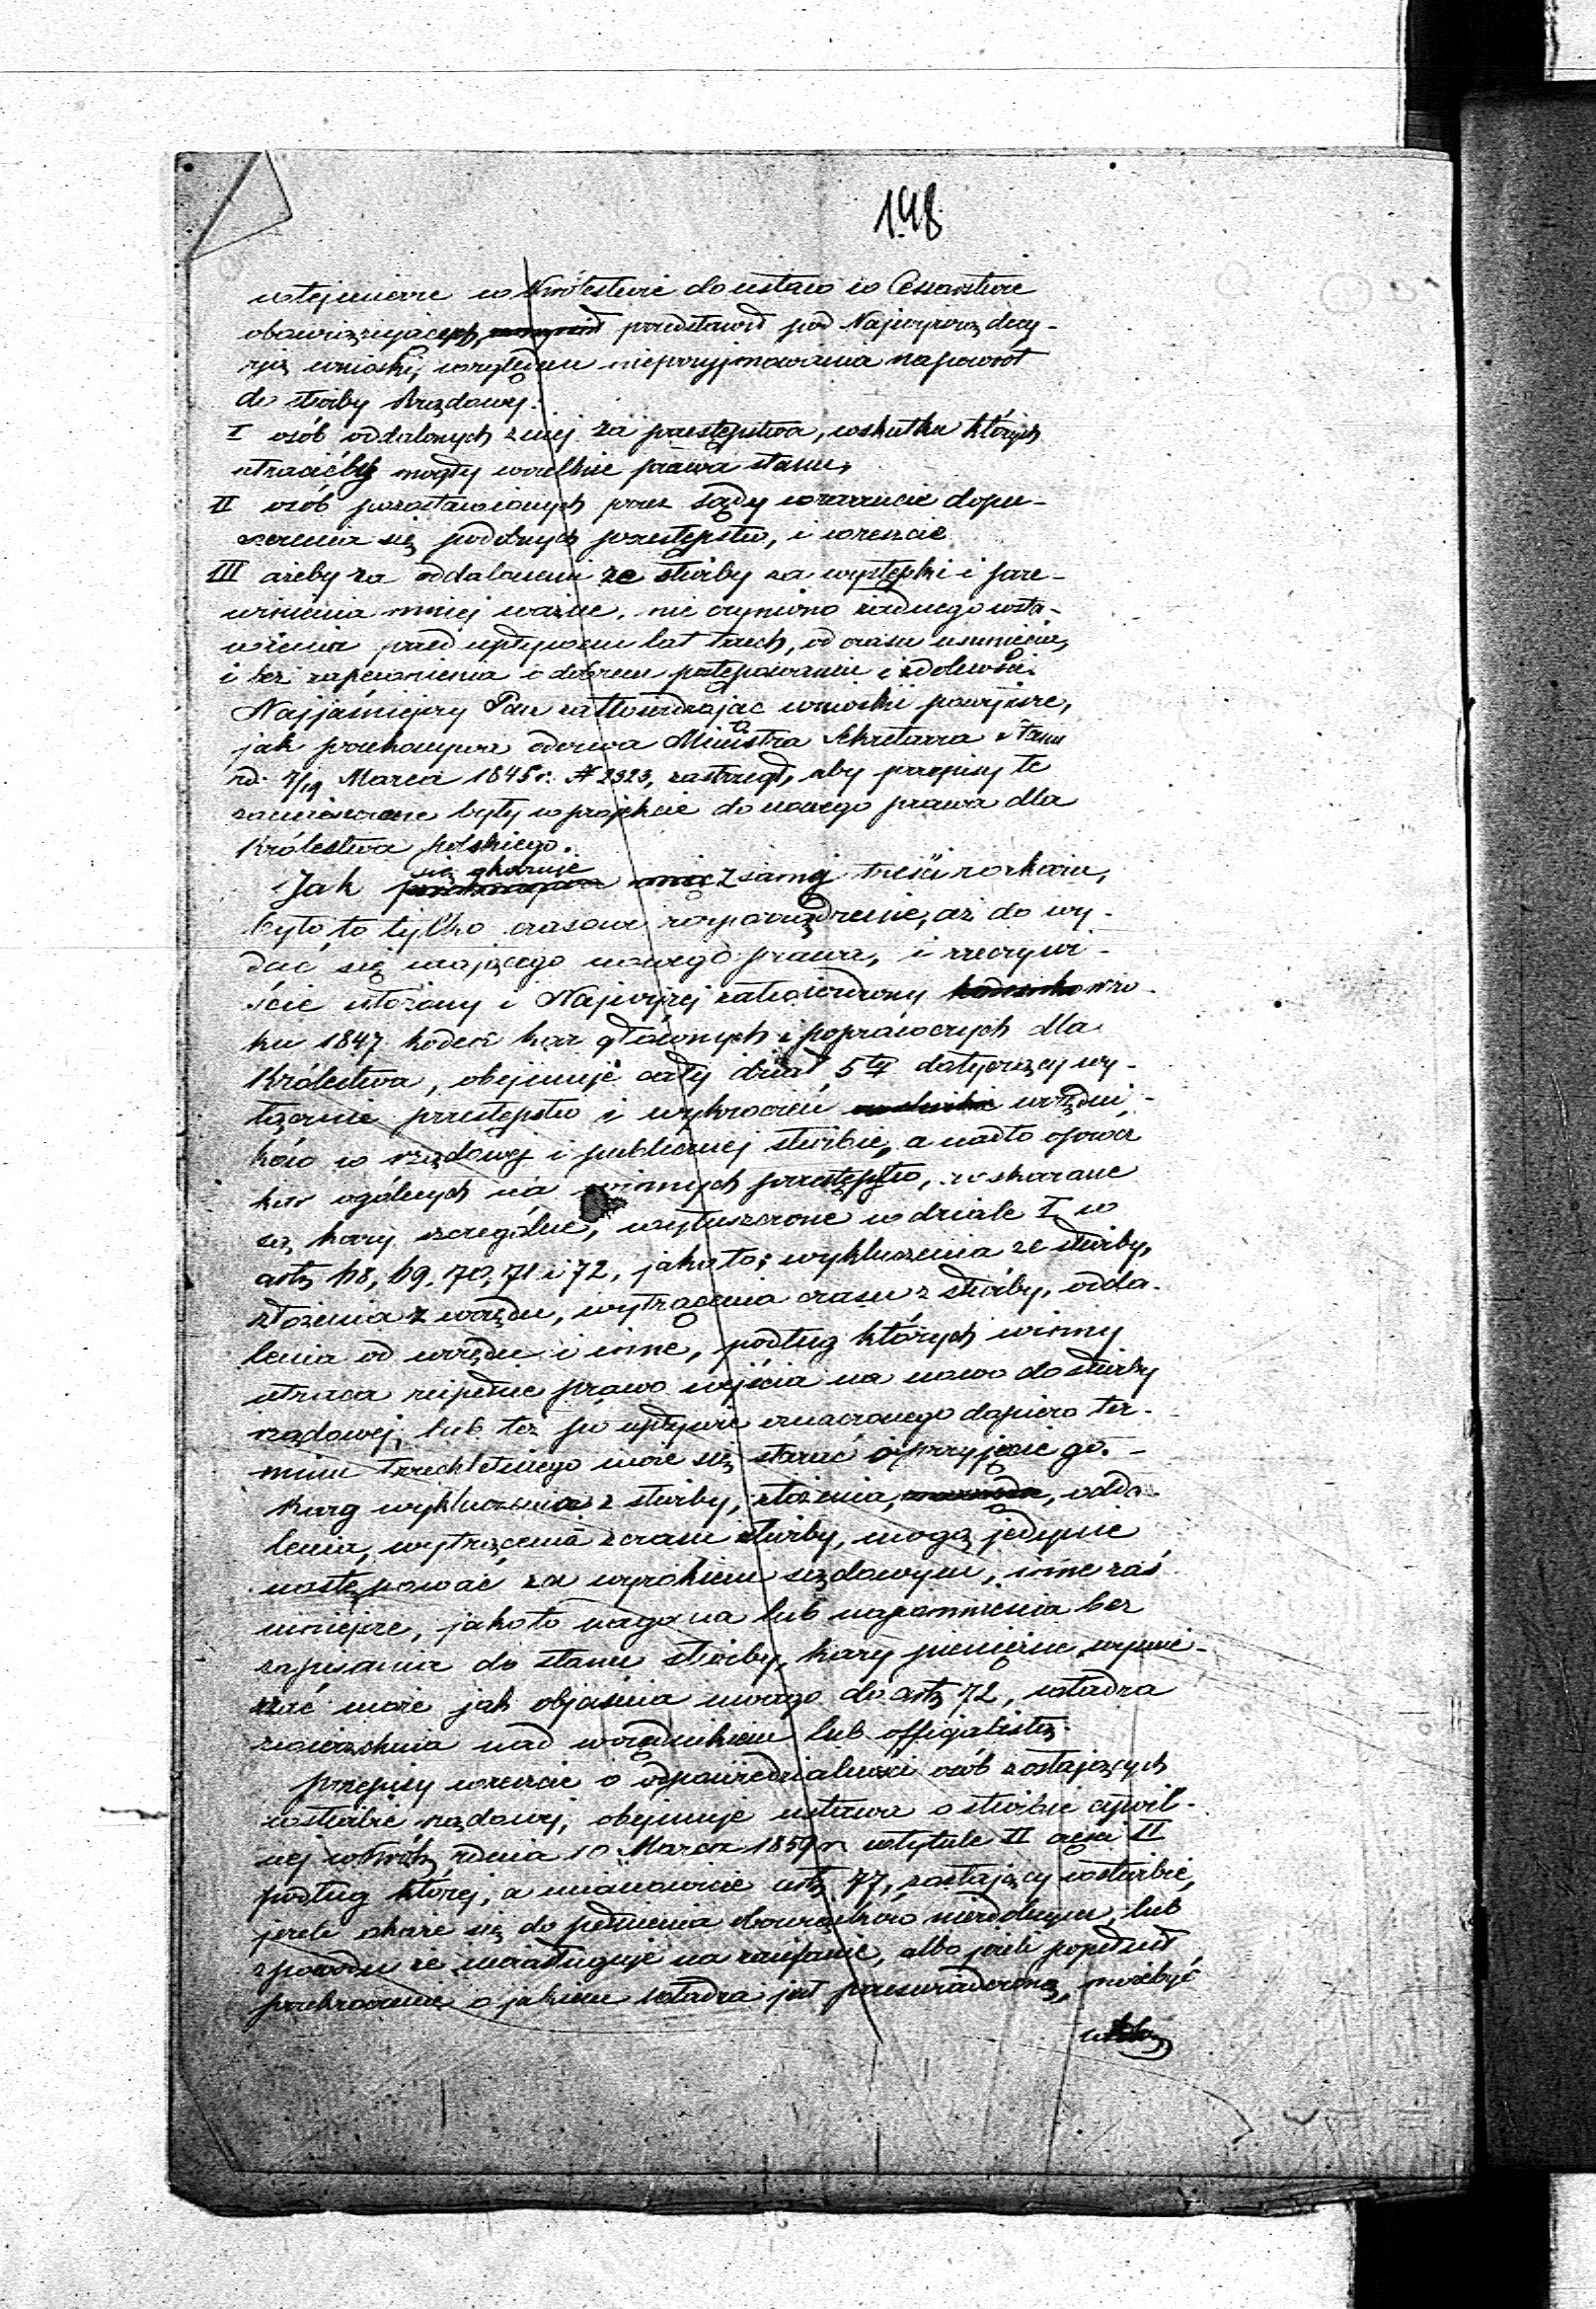 148
w tej mierze w Królestwie do ustaw w Cesarstwie
obowiązujących, przedstawił pod Najwyższą decy-
zją wnioski, względem nieprzyjmowania napowrót
do służby Rządowej.
I osób oddalonych z niej za przestępstwa, wskutku których
utracićby mogły wszelkie prawa stanu,
II osób pozostawionych przez Sądy w zarzucie dopu-
szczenia się podobnych przestępstw, i wreszcie
III ażeby za oddalonemi ze służby za występki i prze-
winienia mniej ważne, nie czyniono żadnego wsta-
wienia przed upływem lat trzech, od czasu usunięcia,
i bez zapewnienia o dobrem postępowaniu i zdolności.
Najjaśniejszy Pan zatwierdzając wnioski powyższe,
jak przekonywa odezwa Ministra Sekretarza Stanu
zd. 7/19 Marca 1845 r. N 2323, zastrzegł, aby przepisy te
zamieszczone były w projekcie do nowego prawa dla
Królestwa polskiego.
się okazuje
Jak z samej treści rozkazu,
było to tylko czasowe rozporządzenie, aż do wy-
dać się mającego nowego prawa, i rzeczywi-
ście ułożony i Najwyżej zatwierdzony w ro-
ku 1847 kodex kar głównych i poprawczych dla
Królestwa, obejmuje cały dział 5ty dotyczący wy-
łącznie przestępstw i wykroczeń urzędni-
ków w rządowej i publicznej służbie, a nadto oprócz
kar ogólnych na winnych przestępstw, wskazane
są kary szczególne, wyłuszczone w dziale I w
art. 68, 69, 70, 71 i 72, jakoto; wykluczenia ze służby,
złożenia z urzędu, wytrącenia czasu z służby, odda-
lenia od urzędu i inne, podług których winny
utraca zupełnie prawo wejścia na nowo do służby
rządowej, lub też po upływie oznaczonego dopiero ter-
minu trzechletniego może się starać o przyjęcie go. -
Karę wykluczenia z służby, złożenia, odda-
lenia, wytrącenia z czasu służby, mogą jedynie
następować za wyrokiem sądowym, inne zaś
mniejsze, jakoto nagana lub napomnienia bez
zapisania do stanu służby, kary pieniężne wymie-
rzać może jak objaśnia uwaga do art. 72, władza
zwierzchnia nad urzędnikiem lub officjalistą.
Przepisy wreszcie o odpowiedzialności osób zostających
w służbie rządowej, obejmuje ustawa o służbie cywil-
nej w Król. z dnia 10 Marca 1859 r. w tytule II części II
podług której, a mianowicie art. 77, zostający w służbie,
jeżeli okaże się do pełnienia obowiązków niezdolnym, lub
z powodu że niezasługuje na zaufanie, albo jeżeli popełnił
przekroczenie o jakiem władza jest przeświadczoną, może być